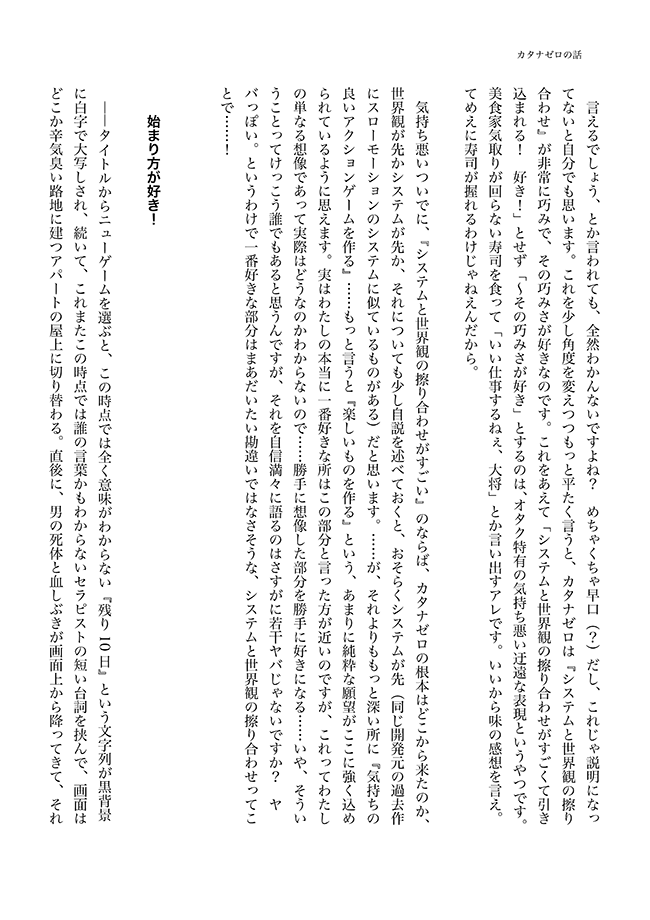 カタナゼロの話
言えるでしょう、とか言われても、全然わかんないですよね?　めちゃくちゃ早口(?)だし、これじゃ説明になっ
てないと自分でも思います。これを少し角度を変えつつもっと平たく言うと、カタナゼロは『システムと世界観の擦り
合わせ』が非常に巧みで、その巧みさが好きなのです。これをあえて「システムと世界観の擦り合わせがすごくて引き
込まれる!　好き!」とせず「〜その巧みさが好き」とするのは、オタク特有の気持ち悪い迂遠な表現というやつです。
美食家気取りが回らない寿司を食って「いい仕事するねぇ、大将」とか言い出すアレです。いいから味の感想を言え。
てめえに寿司が握れるわけじゃねえんだから。
気持ち悪いついでに、『システムと世界観の擦り合わせがすごい』のならば、カタナゼロの根本はどこから来たのか、
世界観が先かシステムが先か、それについても少し自説を述べておくと、おそらくシステムが先(同じ開発元の過去作
にスローモーションのシステムに似ているものがある)だと思います。……が、それよりももっと深い所に『気持ちの
良いアクションゲームを作る』……もっと言うと『楽しいものを作る』という、あまりに純粋な願望がここに強く込め
られているように思えます。実はわたしの本当に一番好きな所はこの部分と言った方が近いのですが、これってわたし
の単なる想像であって実際はどうなのかわからないので……勝手に想像した部分を勝手に好きになる……いや、そうい
うことってけっこう誰でもあると思うんですが、それを自信満々に語るのはさすがに若干ヤバじゃないですか?　ヤ
バっぽい。というわけで一番好きな部分はまあだいたい勘違いではなさそうな、システムと世界観の擦り合わせってこ
とで……!
始まり方が好き!
――タイトルからニューゲームを選ぶと、この時点では全く意味がわからない『残り10日』という文字列が黒背景
に白字で大写しされ、続いて、これまたこの時点では誰の言葉かもわからないセラピストの短い台詞を挟んで、画面は
どこか辛気臭い路地に建つアパートの屋上に切り替わる。直後に、男の死体と血しぶきが画面上から降ってきて、それ